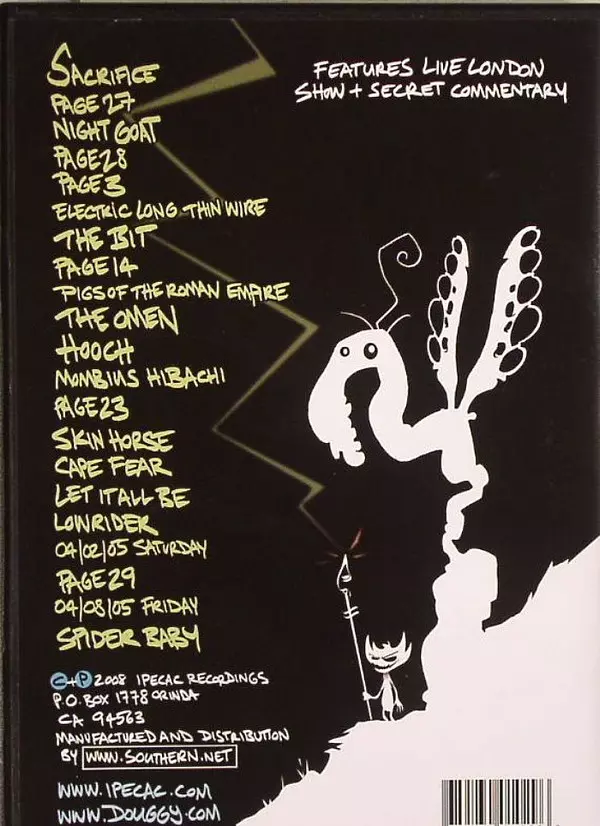 SACRIFICE
PAGE 27
NIGHT GOAT
PAGE 28
PAGE 3
ELECTRIC LONG THIN WIRE
THE BIT
PAGE 14
PIGS OF THE ROMAN EMPIRE
THE OMEN
HOOCH
MOMBIUS HIBACHI
PAGE 23
SKIN HORSE
CAPE FEAR
LET IT ALL BE
LOWRIDER
04/02/05 SATURDAY
PAGE 29
04/08/05 FRIDAY
SPIDER BABY
FEATURES LIVE LONDON
SHOW + SECRET COMMENTARY
©+℗ 2008 IPECAC RECORDINGS
P.O. BOX 1778 ORINDA
CA 94563
MANUFACTURED AND DISTRIBUTION
BY WWW.SOUTHERN.NET
WWW.IPECAC.COM
WWW.DOUGGY.COM